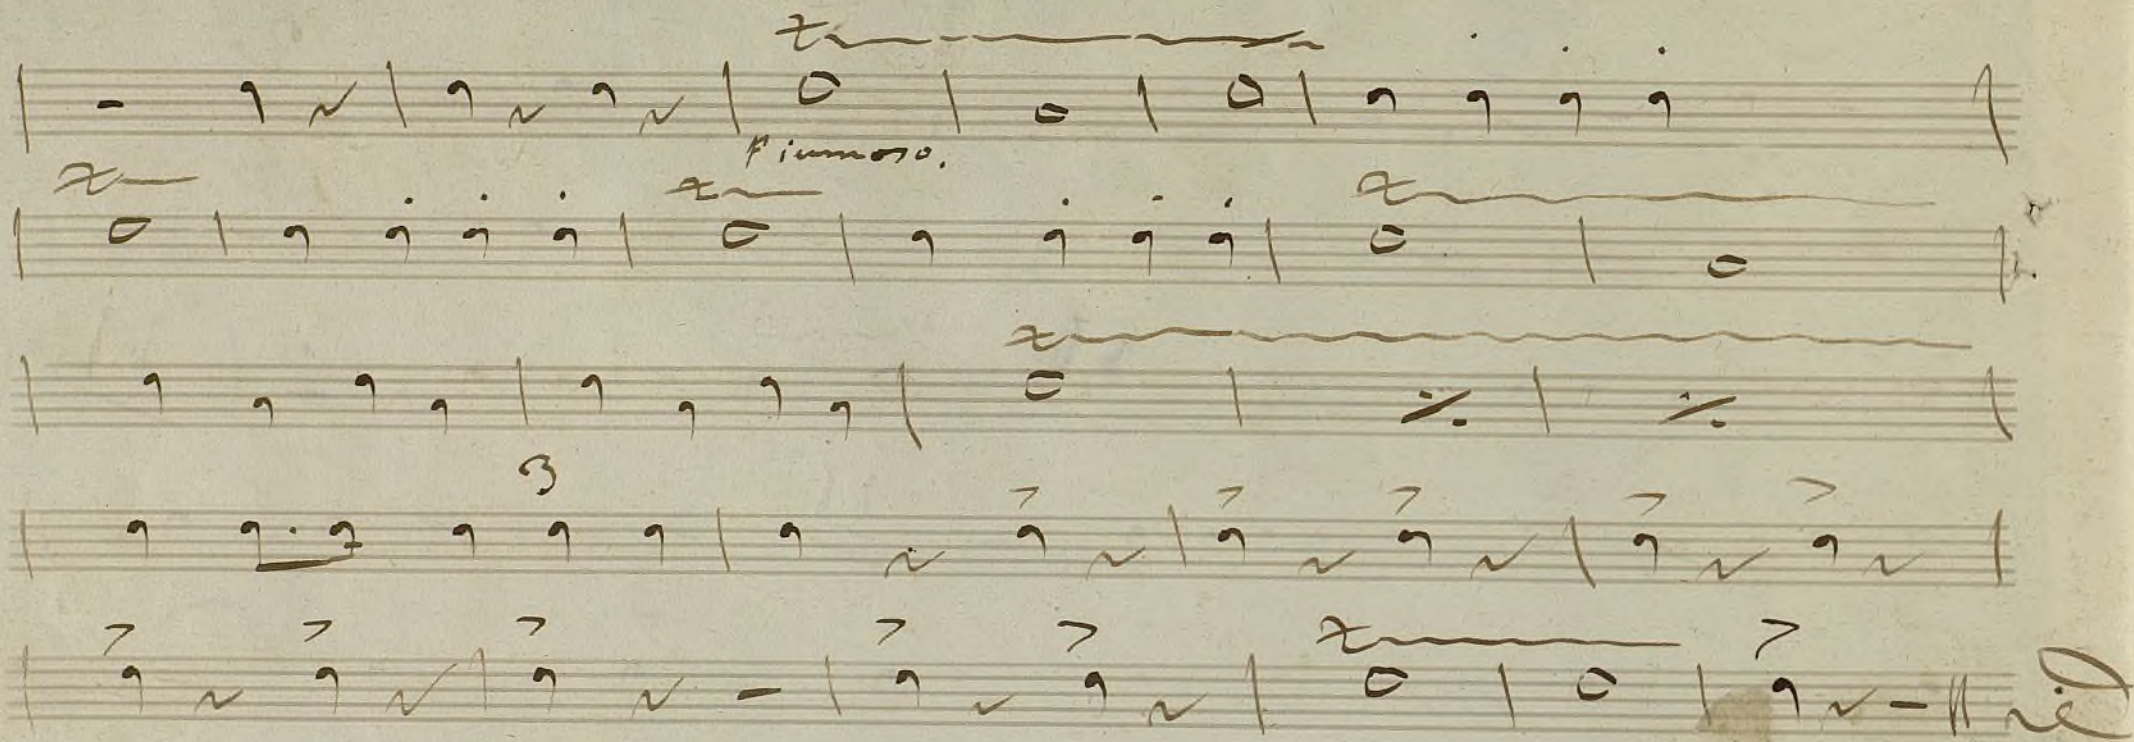 tr
Fiumoso.
tr
tr
tr
tr
3
tr